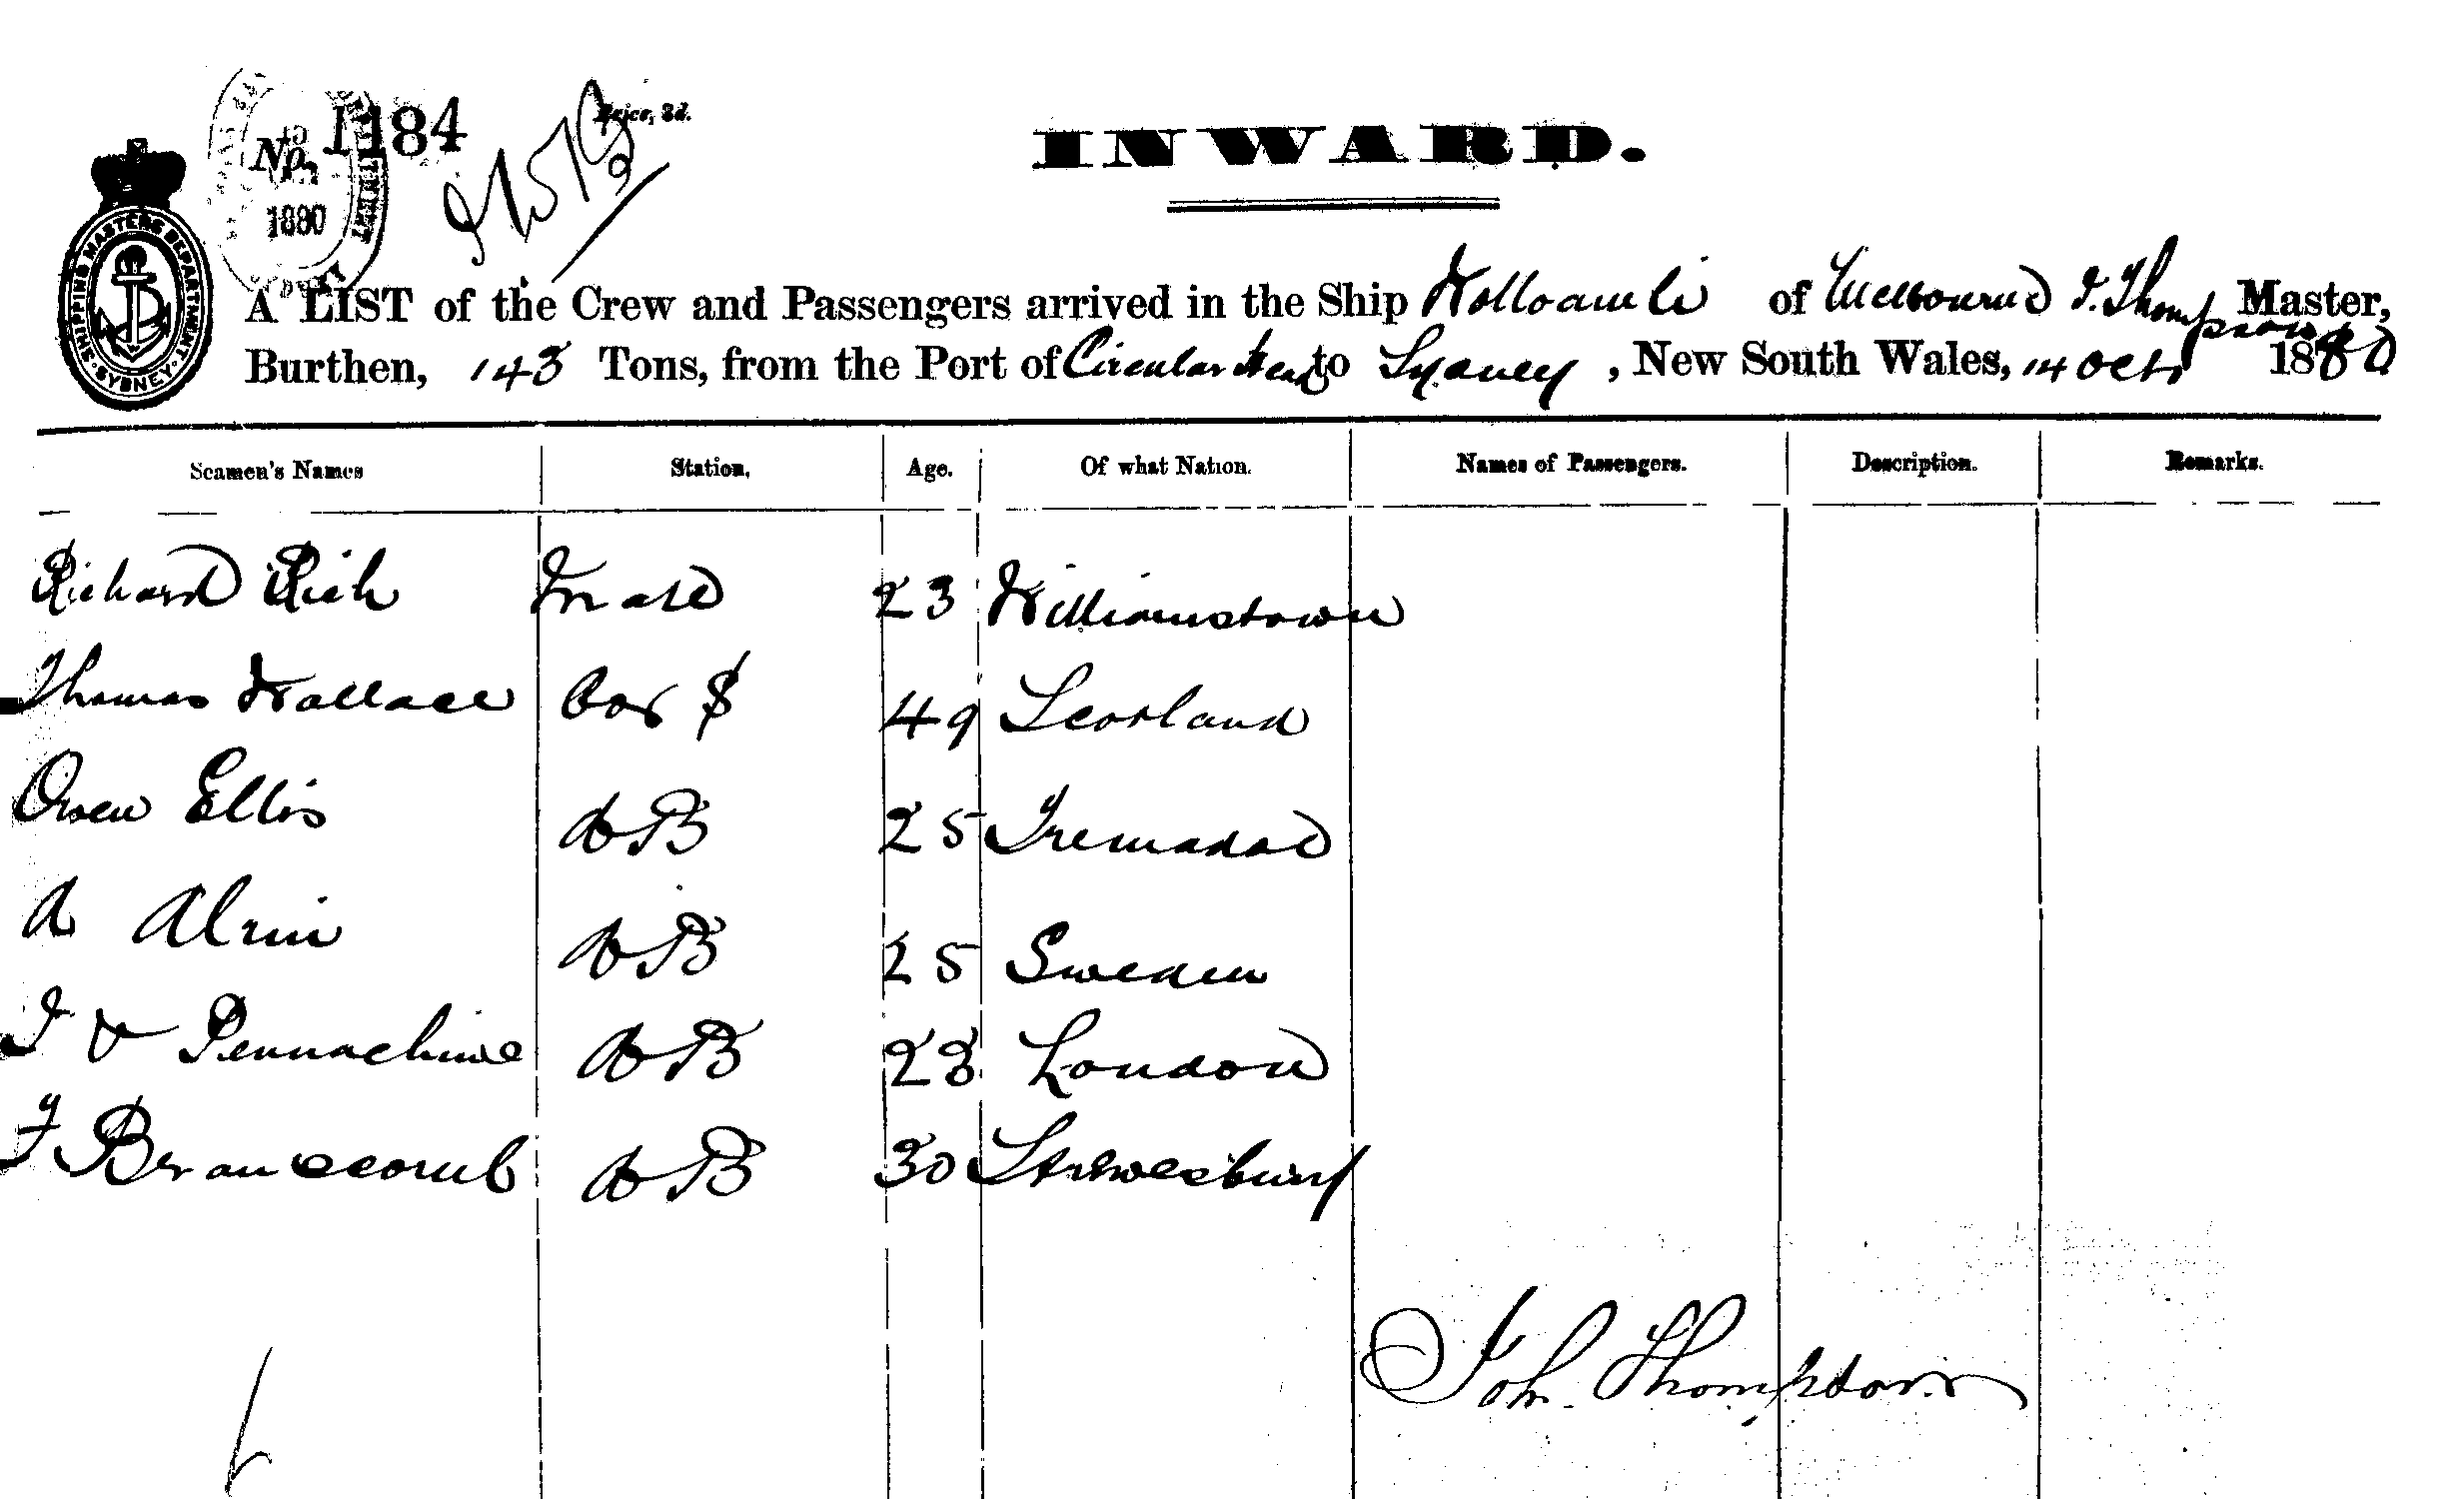 No. 1184
Price, 3d.
1880
INWARD.
SHIPPING MASTERS DEPARTMENT SYDNEY
A LIST of the Crew and Passengers arrived in the Ship Wolloamli of Melbourne J. Thompson Master,
Burthen, 143 Tons, from the Port of Circular Head to Sydney, New South Wales, 14 Octr 1880
Seamen's Names Station. Age. Of what Nation. Names of Passengers. Description. Remarks.
Richard Rich Mate 23 Williamstown
Thomas Wallace 49 Scotland
Owen Ellis AB 25 Tremadoc
A AB 25 Sweden
AB 28 London
F Branscomb AB 30 Shrewesbury
John Thompson